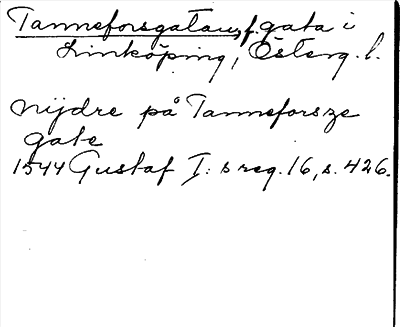 Tanneforsgatan, f. gata i
Linköping, Österg. l.
nijdre på Tanneforsze
gate
1544 Gustaf I: s reg. 16, s. 426.